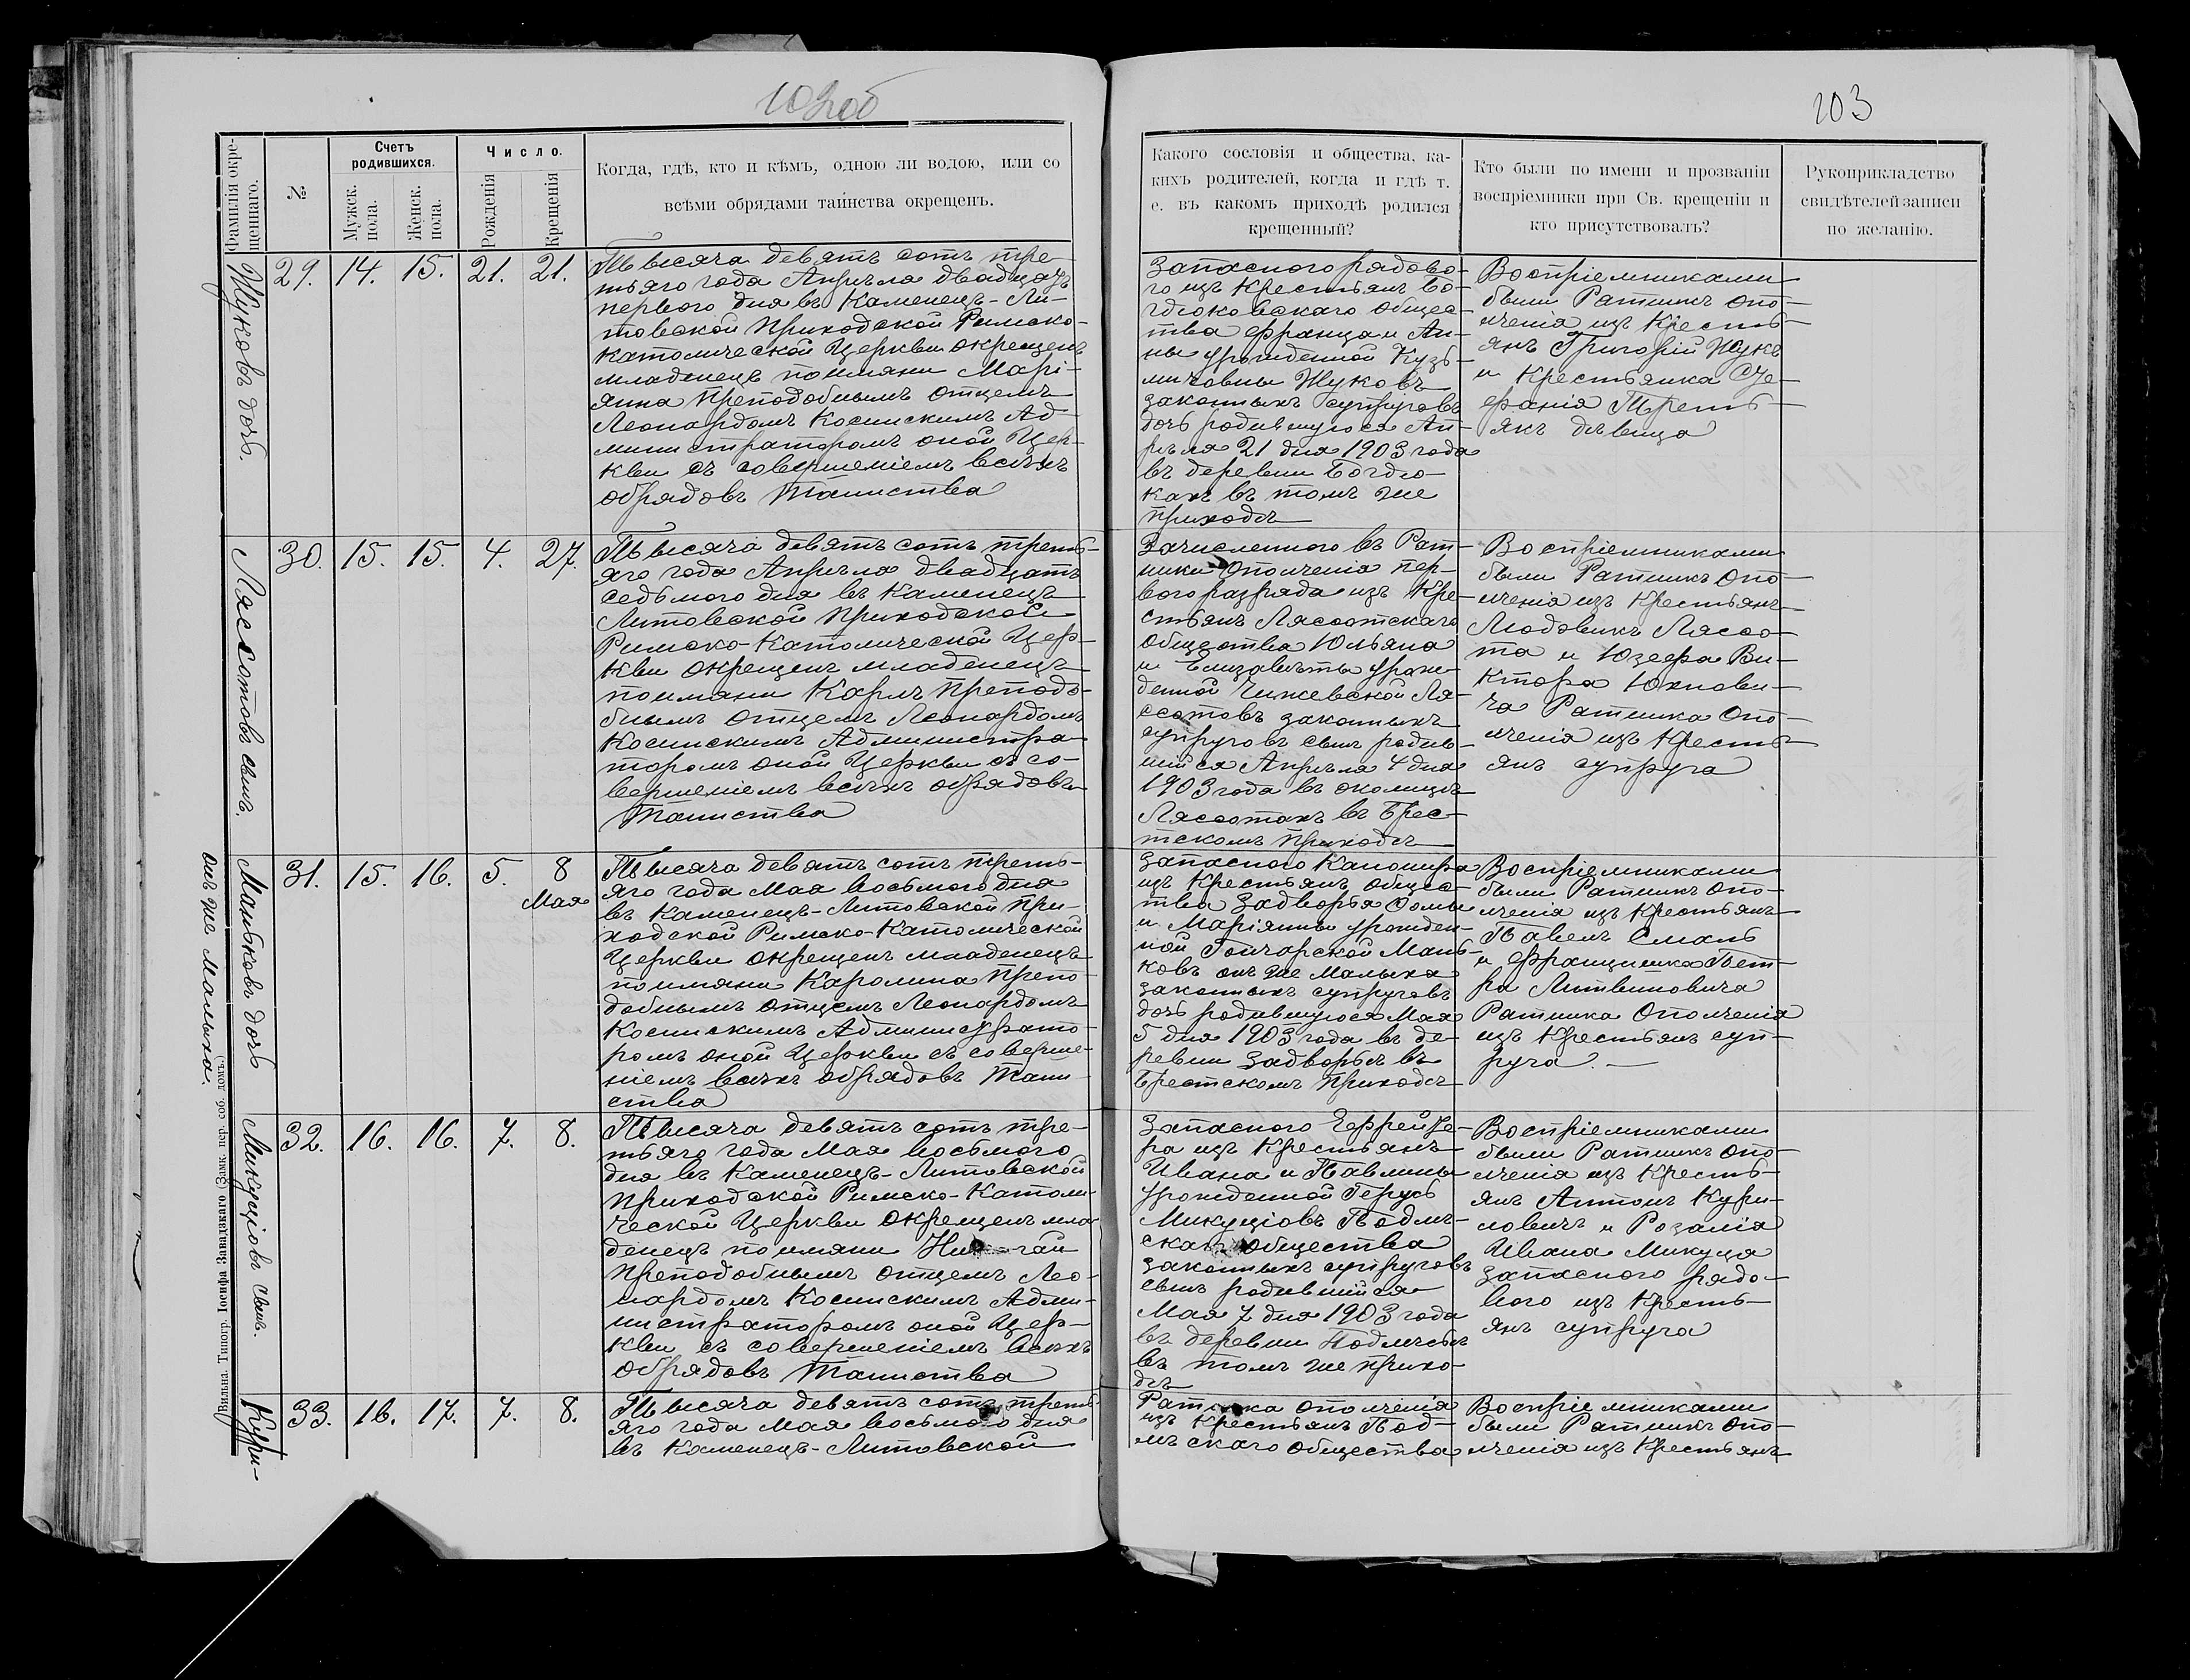 102об
103
Фамилія окре-
щеннаго.
№
Счетъ
родившихся.
Мужск.
пола.
Женск.
пола.
Число.
Рожденія
Крещенія
Когда, гдѣ, кто и кѣмъ, одною ли водою, или со
всѣми обрядами таинства окрещенъ.
Какого сословія и общества, ка-
кихъ родителей, когда и гдѣ т.
е. въ какомъ приходѣ родился
крещенный?
Кто были по имени и прозваніи
воспріемники при Св. крещеніи и
кто присутствовалъ?
Рукоприкладство
свидѣтелей записи
по желанію.
Жуковъ дочь.
29. 14. 15. 21. 21.
Тысяча девятъ сотъ тре-
тьяго года Апрѣля двадцать
перваго дня въ Каменецъ-Ли-
товской Приходской Римско-
католической Церкви окрещенъ
младенецъ поимяни Марі-
анна Преподобнымъ отцемъ
Леонардомъ Косинскимъ Ад-
министраторомъ оной Цер-
кви съ совершеніемъ всѣхъ
обрядовъ Таинства
Запасного рядово-
го изъ Крестьянъ Бо-
гдюковскаго общес-
тва Франца и Ан-
ны урожденной Кузь-
мичовны Жуковъ
законныхъ супруговъ
дочь родившуюся Ап-
рѣля 21 дня 1903 года
въ деревни Богдю-
кахъ въ томъ же
приходѣ
Воспріемниками
были Ратникъ опо-
лченія изъ Кресть-
янъ Григорій Жукъ
и Крестьянка Сте-
фанія Треть-
якъ дѣвица
Лясотовъ сынъ.
30. 15. 15. 4. 27.
Тысяча девятъ сотъ треть-
яго года Апрѣля двадцать
седьмого дня въ Каменецъ
Литовской Приходской
Римско-Католической Цер-
кви окрещенъ младенецъ
поимяни Карлъ Преподо-
бнымъ отцемъ Леонардомъ
Косинскимъ Администра-
торомъ оной Церкви съ со-
вершеніемъ всѣхъ обрядовъ
Таинства
Зачисленного въ Рат-
ники ополченія пер-
вого разряда изъ Кре-
стьянъ Лясотскаго
общества Юльяна
и Елизаветы урож-
денной Чижевской Ля-
ссотовъ законныхъ
супруговъ сынъ родив-
шійся Апрѣля 4 дня
1903 года въ околицѣ
Лясотахъ въ Брес-
тскомъ приходѣ
Воспріемниками
были Ратникъ опо-
лченія изъ Крестьянъ
Людовикъ Лясо-
та и Юзефа Ви-
ктора Юхнови-
ча Ратника опо-
лченія изъ Кресть-
янъ супруга
Маньковъ дочь
онъ же Малыха.
31. 15. 16. 5. 8
Мая
Тысяча девятъ сотъ треть-
яго года Мая восьмого дня
въ Каменецъ-Литовской При-
ходской Римско-Католической
Церкви окрещенъ младенецъ
поимяни Каролина Препо-
добнымъ отцемъ Леонардомъ
Косинскимъ Администрато-
ромъ оной Церкви съ соверше-
ніемъ всѣхъ обрядовъ Таин-
ства
Запасного Канонира
изъ Крестьянъ общес-
тва Задворья Фомы
и Маріанны урожден-
ной Гончарской Мань-
ковъ онъ же Малыха
законныхъ супруговъ
дочь родившуюся Мая
5 дня 1903 года въ де-
ревни Задворьѣ въ
Брестскомъ приходѣ
Воспріемниками
были Ратникъ опо-
лченія изъ Крестьянъ
Павелъ Смаль
и Францишка Пет-
ра Литвиновича
Ратника Ополченія
изъ Крестьянъ суп-
руга.
Микуціовъ сынъ.
32. 16. 16. 7. 8.
Тысяча девятъ сотъ тре-
тьяго года Мая восьмого
дня въ Каменецъ-Литовской
Приходской Римско-Католи-
ческой Церкви окрещенъ мла-
денецъ поимяни
Преподобнымъ отцемъ Лео-
нардомъ Косинскимъ Адми-
нистраторомъ оной Цер-
кви съ совершеніемъ всѣхъ
обрядовъ Таинства
Запасного Ефрейто-
ра изъ Крестьянъ
Ивана и Павлины
урожденной Герусь
Микуціовъ Подлѣ-
скаго общества
законныхъ супруговъ
сынъ родившійся
Мая 7 дня 1903 года
въ деревни Подлѣсьѣ
въ томъ же прихо-
дѣ
Воспріемниками
были Ратникъ опо-
лченія изъ Кресть-
янъ Антонъ Кури-
ловичъ и Розалія
Ивана Микуця
запасного рядо-
вого изъ Кресть-
янъ супруга
Кури-
33. 16. 17. 7. 8.
Тысяча девятъ сотъ треть-
яго года Мая восьмого дня
въ Каменецъ-Литовской
Ратника ополченія
изъ Крестьянъ Под-
лѣскаго общества
Воспріемниками
были Ратникъ опо-
лченія изъ Крестьянъ
Вильна. Типогр. Іосифа Завадзкаго (Замк. пер. соб. домъ.)